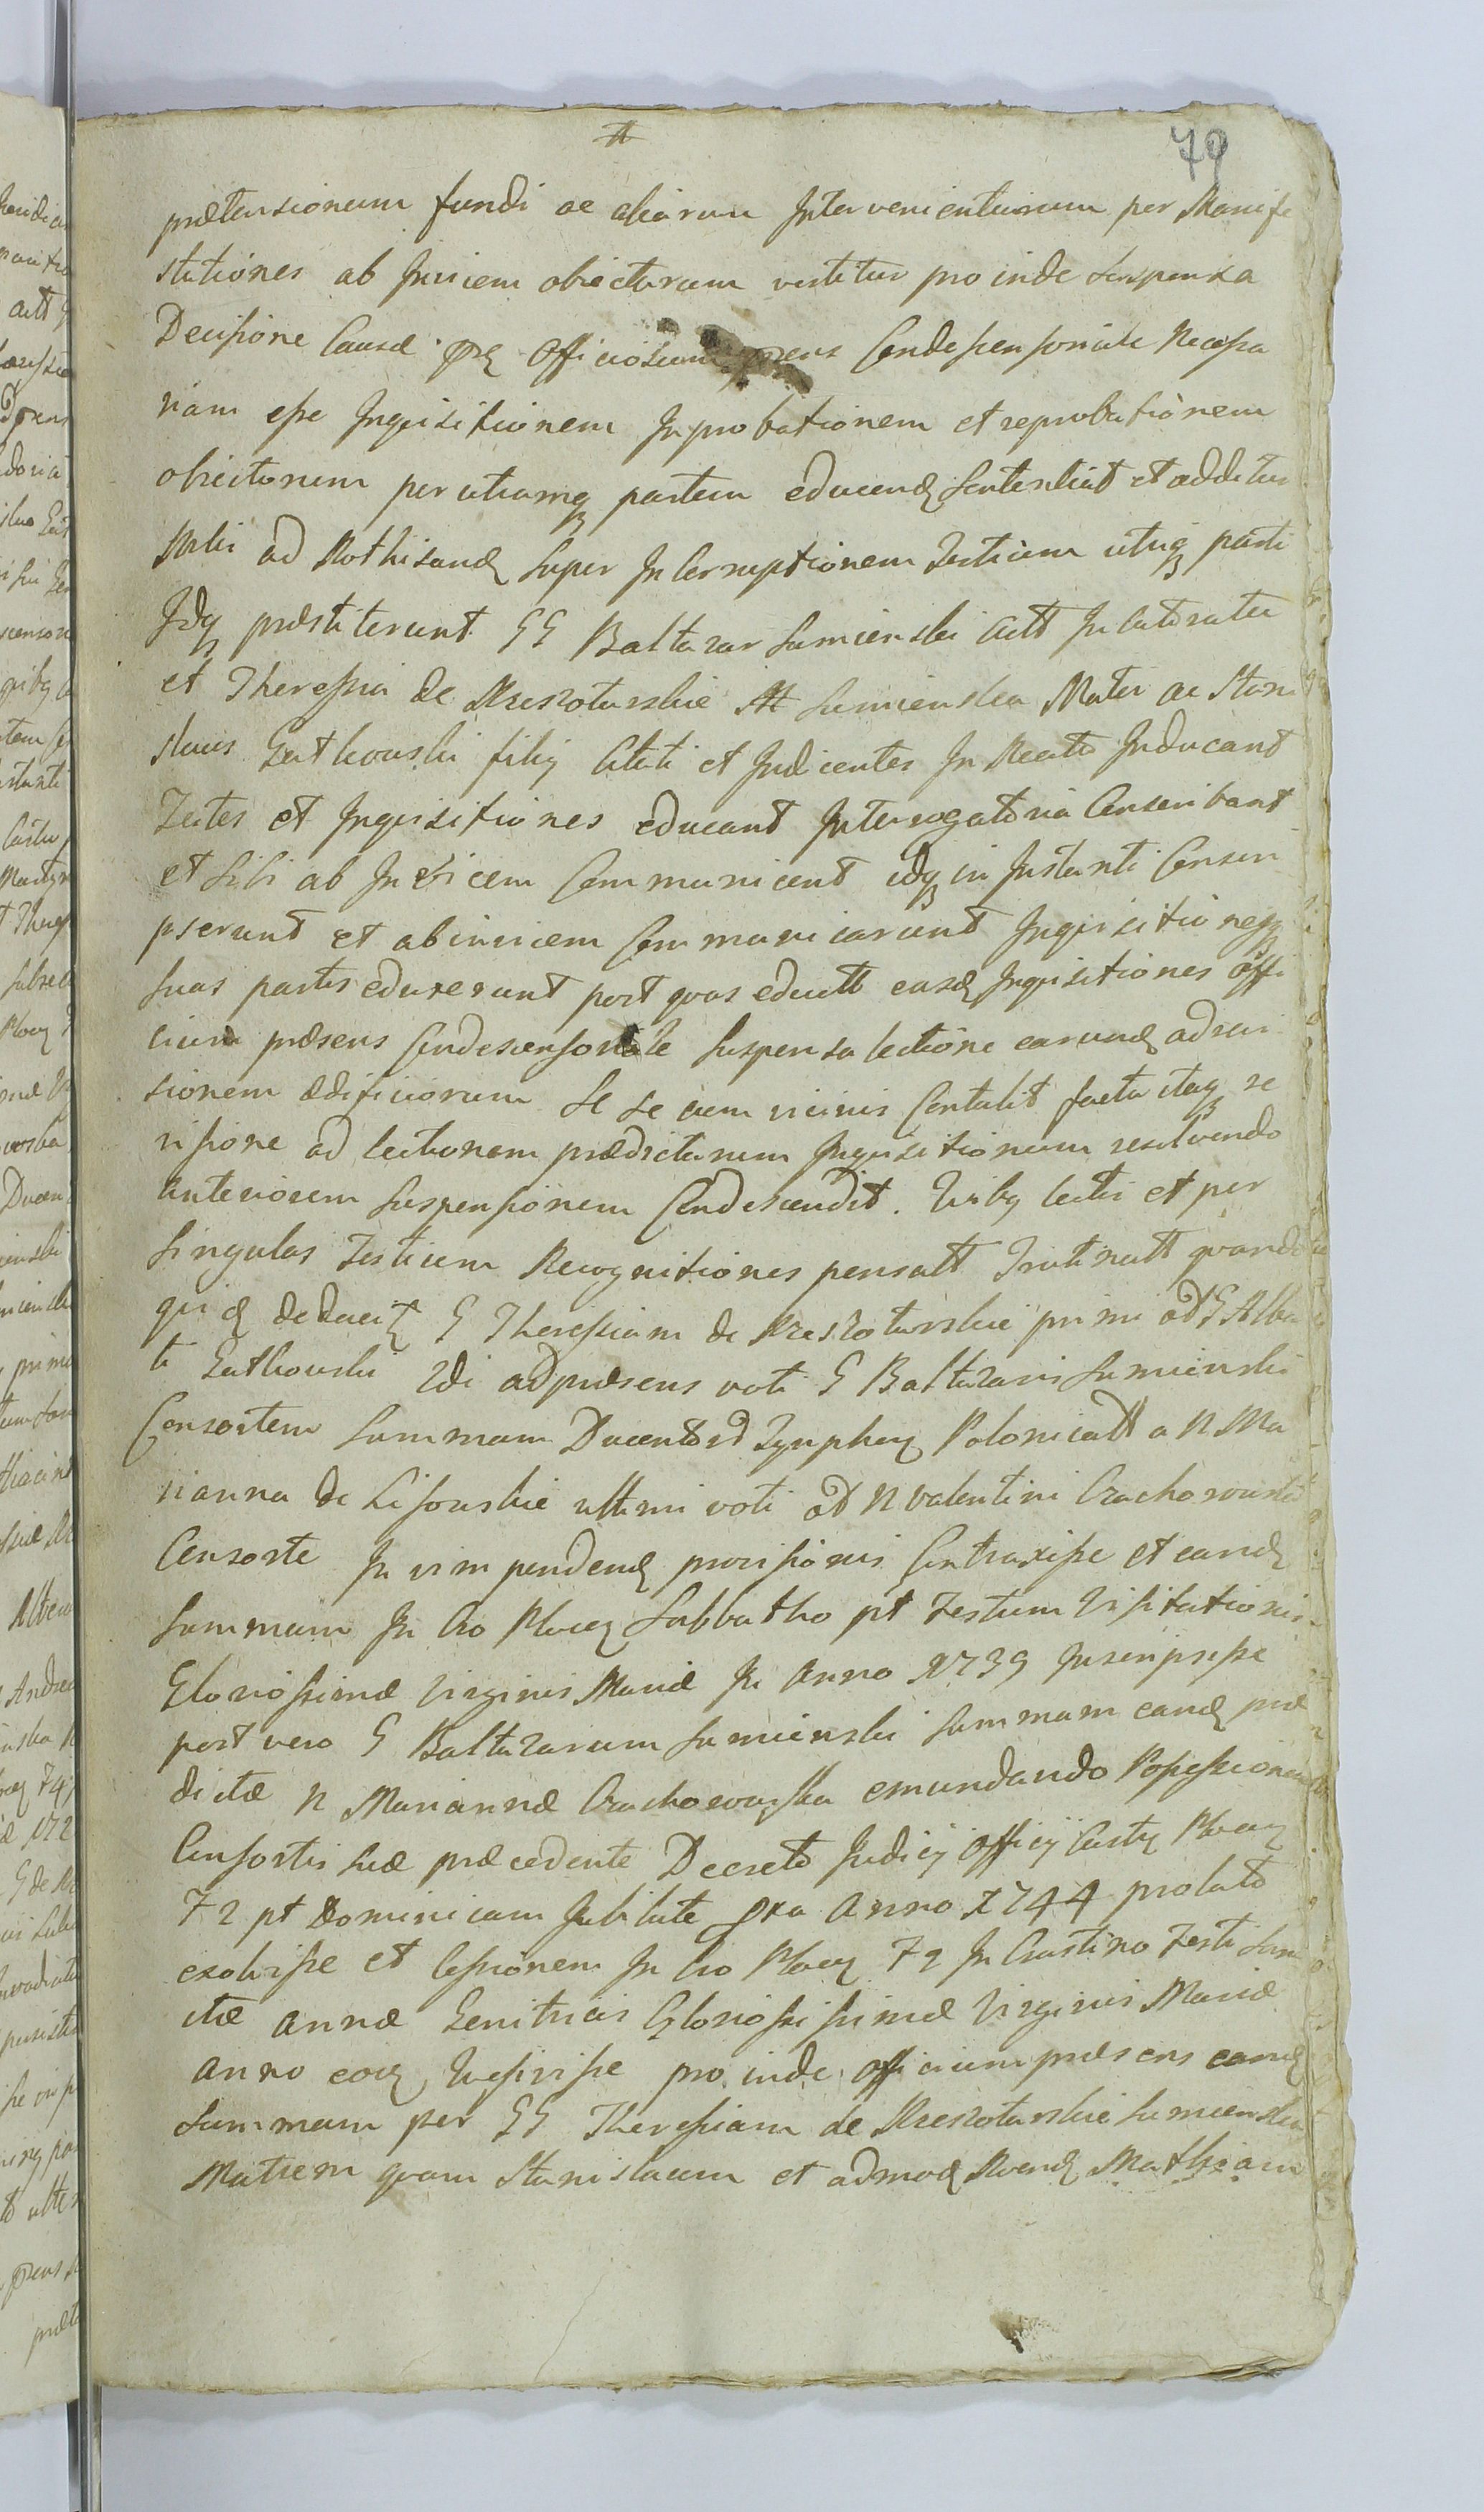 79
prætensionum fundi ac aliarum Intervenientiarum per Manife
stationes ab Invicem obiectarum vertitur pro inde suspensa
Decisione Causæ Officiosum Condescensoriale Necessa
riam esse Inquisitionem In probationem et reprobationem
obiectorum per utramq partem educend Sententiat et additur
ad Rothisand super In Corruptionem Testium utriq parti
Idq præstiterunt GG Baltazar Sumienski Actt In
et Theressia de Krzeszotarskie Sumienska Mater ac Stani
slaus Gutkowski filiq Citati et Indicentes In Reatu Inducant
Testes et Inquisitiones educant Interogatoria Conscribant
et sibi ab Invicem Communicent idq in Instanti Conscri
pserunt et abinvicem Communicarunt Inquisitionesq
suas partes eduxerunt post quas eductt easd Inquisitiones Offi
cium præsens Condescensoriale suspensa lectione earund ad revi
sionem ædificiorum Se se cum vicinis Contulit facta itaq re
visione ad lectionem prædictarum Inquisitionum resolvendo
anteriorem suspensionem Condescendit. Quibq lectis et per
singulas Testium Recognitiones pensatt Trutinatt quando
quid deducit G Theressiam de Krzeszotarskie primi ad G Alber
ti Gutkowski 2di ad præsens voti G Baltazaris Sumienski
Consortem Summam Ducentord Tynpheq Polonicatt a N Ma
rianna de Lisouskie ultimi voti ad N Valentini Crachorouski
Consorte In vim pendend provisionis Contraxisse et eand
Summam In Cro Plocen Sabbatho pt Festum Visitationis
Gloriossimæ Virginis Mariæ In Anno 1739 Inscripsisse
post vero G Baltazarum Sumienski Summam eand præ
dictæ N Mariannæ Crachorouska emundando Possessionem
Consortis suæ præcedente Decreto Judicij Officij Castr Plocen
F 2 pt Dominicam Jubilate Anno 1744 prolato
exolvisse et Cessionem In Cro Plocen F 2 In Crastino Festi San
ctæ Annæ Genitricis Gloriosissimæ Virginis Mariæ
Anno eod pro inde Officium præsens eand
Summam per GG Theressiam de Krzeszotarskie Sumienska
Matrem quam Stanislaum et admod Rvend Mathiam